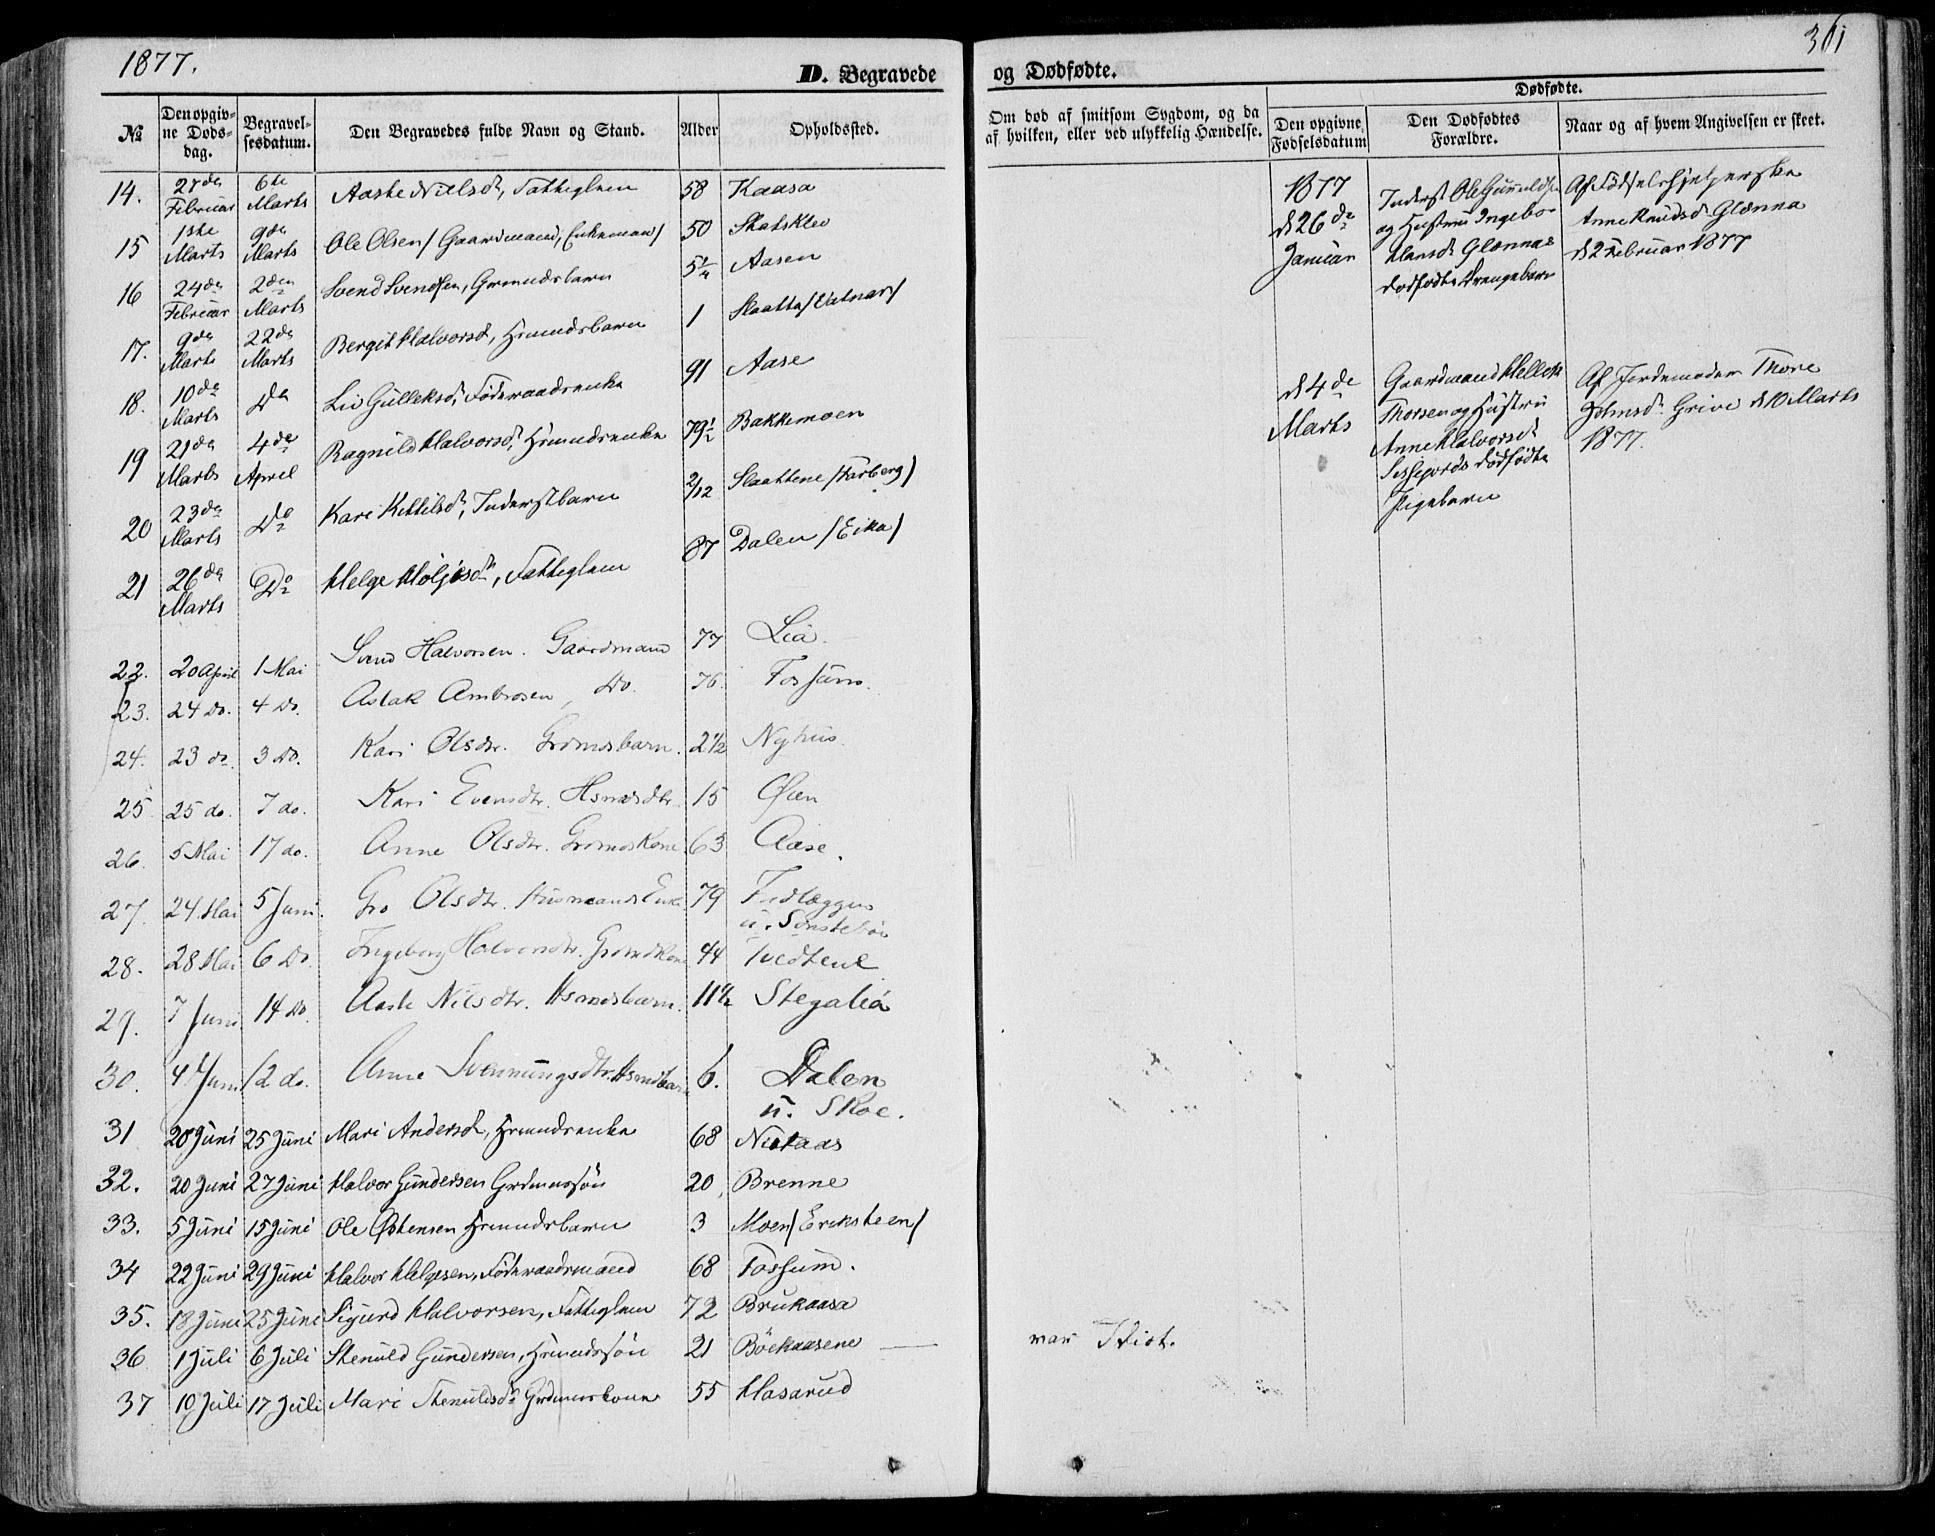 1877.
D. Begravede
№
Den opgiv-
ne Døds-
dag.
Begravel-
sesdatum.
Den Begravedes fulde Navn og Stand.
Alder
Opholdssted.
14. 27de Februar 6te Marts Aaste Nielsd, Fattiglem 58 Kaasa
15 1ste Marts 9de Marts Ole Olsen / Gaardmand, Enkemand / 50 Skatsklev
16 24de Februar 2den Marts Svend Svendsen, Grmndsbarn 5 1/4 Aasen
17. 9de Marts 22de Marts Bergit Halvorsd, Hrmndsbarn 1 Slaatta / Vatnar /
18. 10de Marts Do Liv Gulleksd, Føderaadsenke 91 Aase
19 21de Marts 4de April Ragnild Halvorsd, Hrmndsenke 79 1/2 Bakkemoen
20 23de Marts Do Kari Kittilsd, Inderstbarn 2/12 Slaattene / Farberg /
21 26de Marts Do Helge Holjesdr, Fattiglem 87 Dalen / Eika /
22. 20 April 1 Mai Svend Halvorsen. Gaardmand 77 Lia.
23. 24 Do. 4 Do. Aslak Ambrosen, Do. 76. Fossum.
24. 23 do. 3 Do. Kari Olsdtr. Grdmdsbarn. 2 1/2 Nyhus.
25 25 do. 7 do. Kari Evensdtr. Hsmdsdtr. 15 Øien
26. 5 Mai 17 do. Anne Olsdtr. Grdmdskone 63 Aase.
27. 24 Mai 5 Juni. Gro Olsdtr. Husmands Enke 79
u. Sønstebø
28. 28 Mai 6 Do. Ingeborg Halvorsdtr. Grdmdkone 44 Tvedtene
29. 7 Juni 14 Do. Aaste Nilsdtr. Hsmdsbarn. 11 1/2 Stegalia
30. 4 Juni 12 do. Anne Svenningsdtr. Hsmdsbarn 6. Dalen
u. Skoe.
31 20 Juni 25 Juni Mari Andersd, Hrmndsenke 68
32. 20 Juni 27 Juni Halvor Gundersen Grdmnssøn 20 Brenne
33. 5 Juni 15 Juni Ole Østensen Hrmndsbarn 3 Moen / Eriksteen /
34 22 Juni 29 Juni Halvor Helgesen, Føderaadsmand 68 Fossum.
35. 18 Juni 25 Juni Sigurd Halvorsen, Fattiglem 72 Brukaasa
36. 1 Juli 6 Juli Stenuld Gundersen, Hrmndssøn 21 Bøekaasene
37 10 Juli 17 Juli Mari Stenuldsdr Grdmnskone 55 Hasarud
361
og Dødfødte.
Om død af smitsom Sygdom, og da
af hvilken, eller ved ulykkelig Hændelse.
Dødfødte.
Den opgivne
Fødselsdatum
Den Dødfødtes
Forældre.
Naar og af hvem Angivelsen er skeet.
1877
d 26de
Januar
Inderst Ole Gunuldsen
og Hustru Ingebor
Hansd Glænnas
dødfødte Drengebarn
Af Fødselshjelperske
Anne Knudsd Glænna
d 2 Februar 1877
d 4de
Marts
Gaardmand Hellek
Thorsen og Hustru
Anne Halvorsd
dødfødte
Pigebarn
Af Jordemoder Thore
Johnsd. Grivi d 10 Marts
1877.
var Idiot.